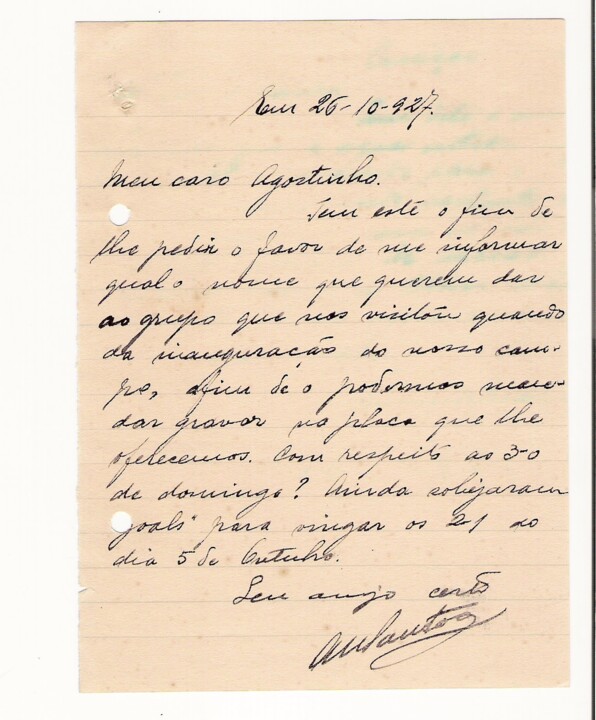 Em 26-10-927.
Meu caro Agostinho.
Tem este o fim de
lhe pedir o favor de me informar
qual o nome que querem dar
ao grupo que nos visitou quando
da inauguração do nosso cam-
po, afim de o podermos man-
dar gravar na placa que lhe
oferecemos. Com respeito ao 3-0
de domingo? Ainda sobejaram
goals" para vingar os 2-1 do
dia 5 de Outubro.
Seu amigo certo